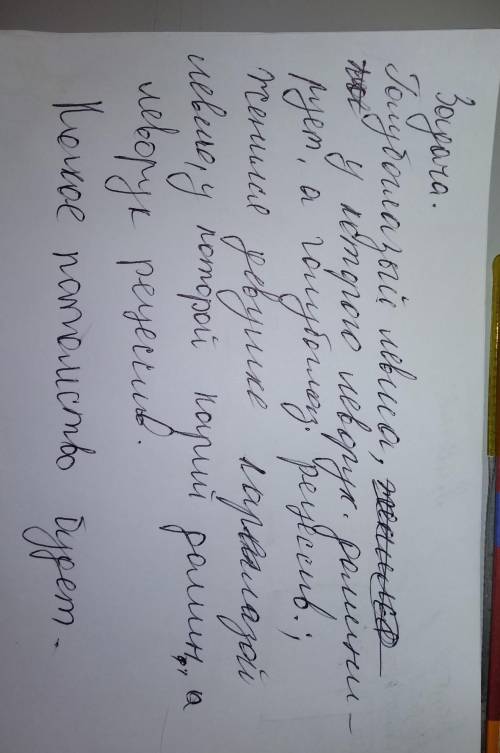 Задача.
Голубоглазый левша,
у которого леворук. домини-
рует, а голубоглаз. рецессив.;
женился девушке кареглазой
левше, у которой карий домин., а
леворук рецессив.
Какое потомство будет.